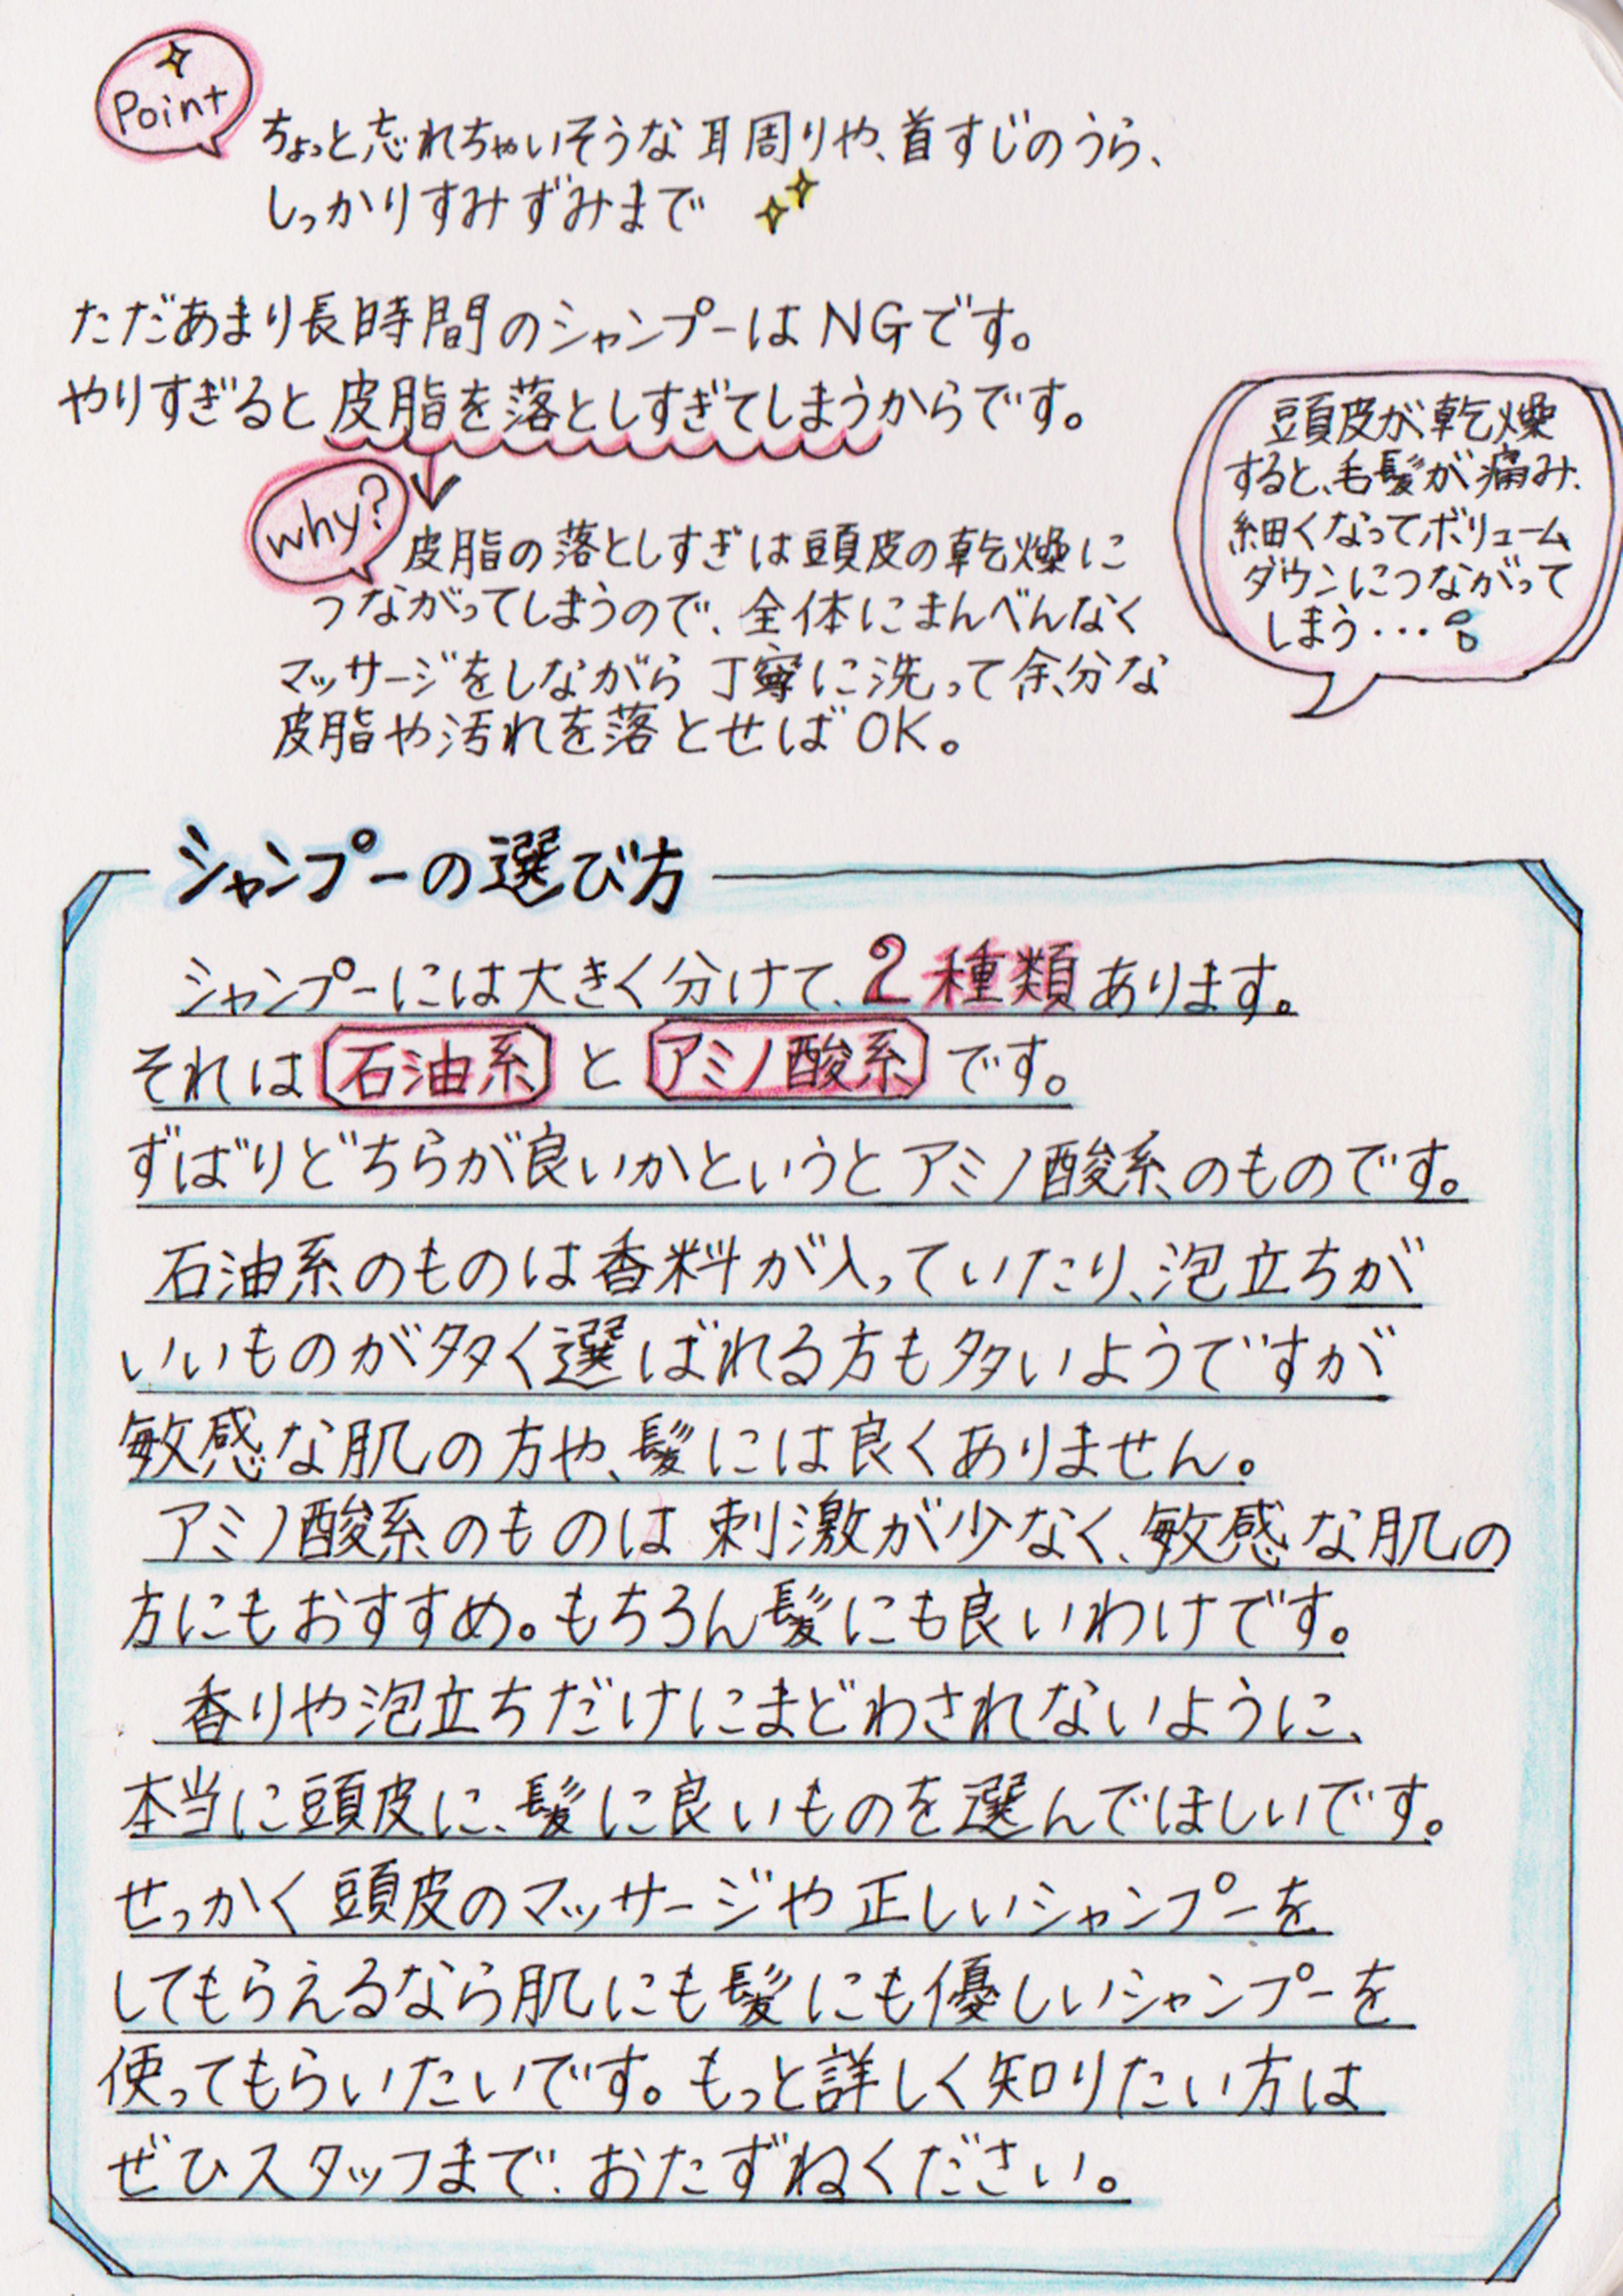 Point
ちょっと忘れちゃいそうな耳周りや、首すじのうら、
しっかりすみずみまで
ただあまり長時間のシャンプーはNGです。
やりすぎると皮脂を落としすぎてしまうからです。
why?
皮脂の落としすぎは頭皮の乾燥に
つながってしまうので、全体にまんべんなく
マッサージをしながら丁寧に洗って余分な
皮脂や汚れを落とせばOK。
頭皮が乾燥
すると、毛髪が痛み、
細くなってボリューム
ダウンにつながって
しまう・・・
シャンプーの選び方
シャンプーには大きく分けて、2種類あります。
それは石油系とアミノ酸系です。
ずばりどちらが良いかというとアミノ酸系のものです。
石油系のものは香料が入っていたり、泡立ちが
いいものが多く選ばれる方も多いようですが
敏感な肌の方や、髪には良くありません。
アミノ酸系のものは刺激が少なく、敏感な肌の
方にもおすすめ。もちろん髪にも良いわけです。
香りや泡立ちだけにまどわされないように、
本当に頭皮に、髪に良いものを選んでほしいです。
せっかく頭皮のマッサージや正しいシャンプーを
してもらえるなら肌にも髪にも優しいシャンプーを
使ってもらいたいです。もっと詳しく知りたい方は
ぜひスタッフまで、おたずねください。